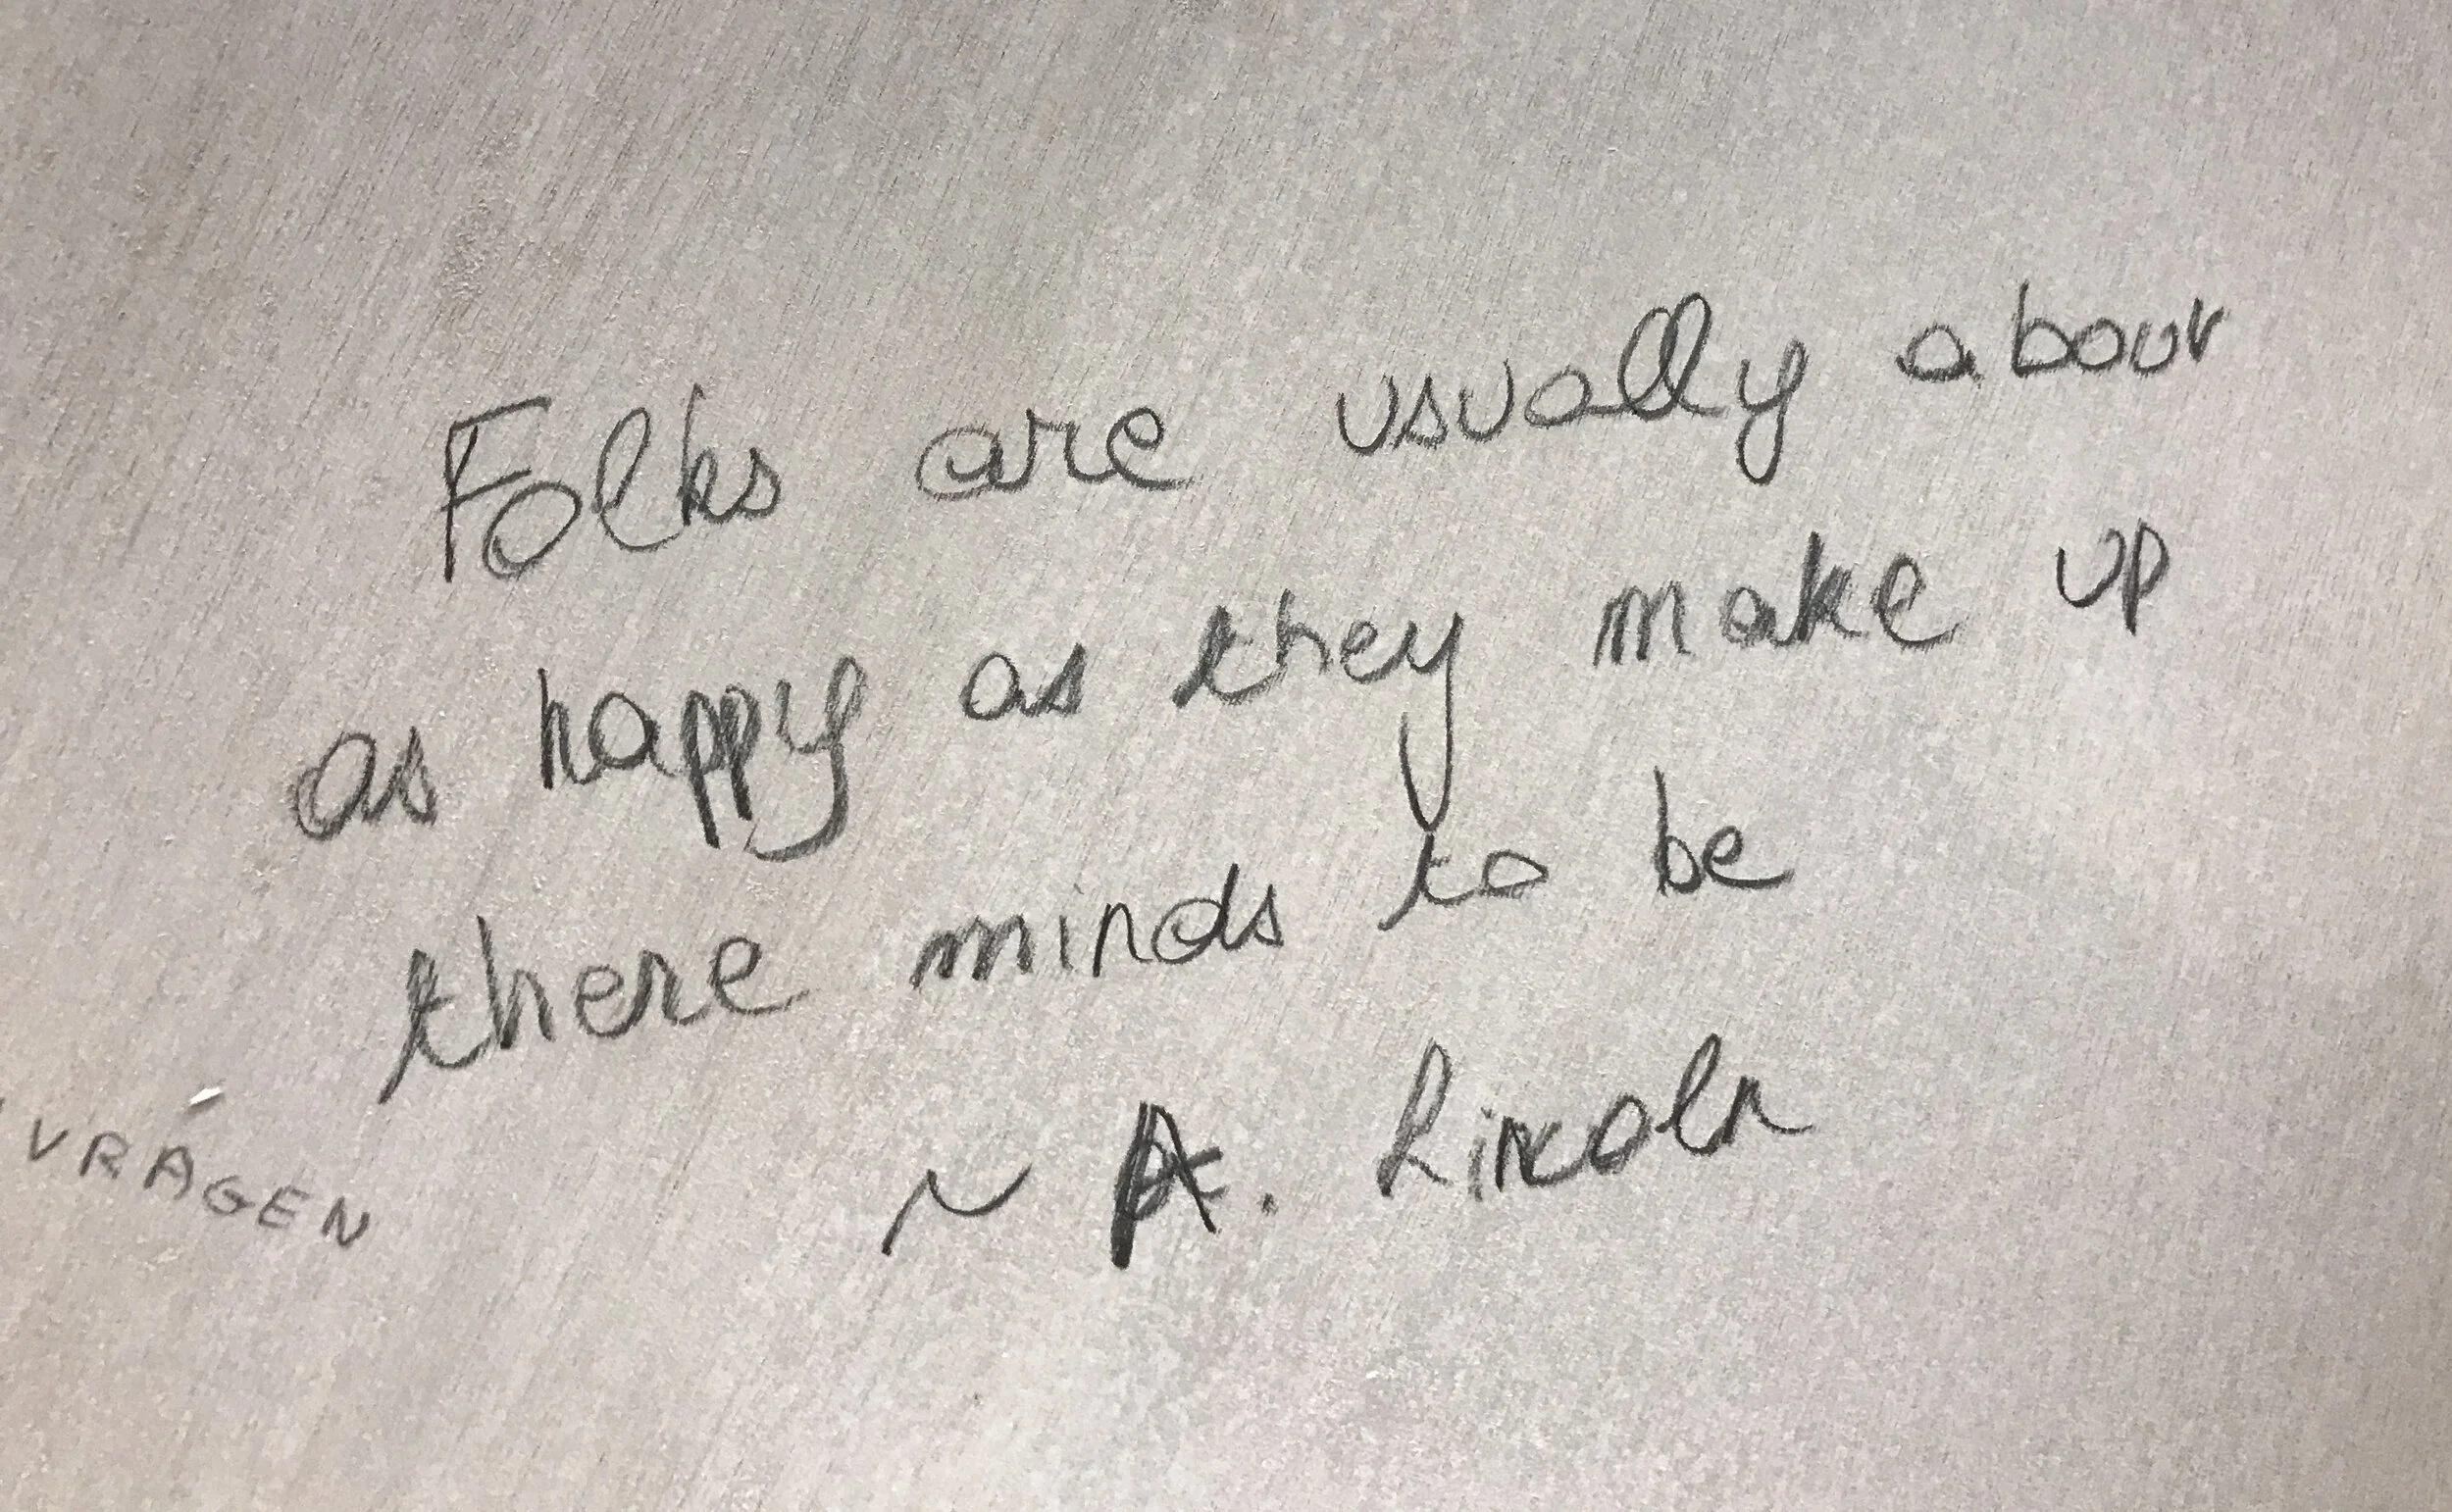 Folks are usually about
as happy as they make up
there minds to be
~ A. Lincoln
VRAGEN